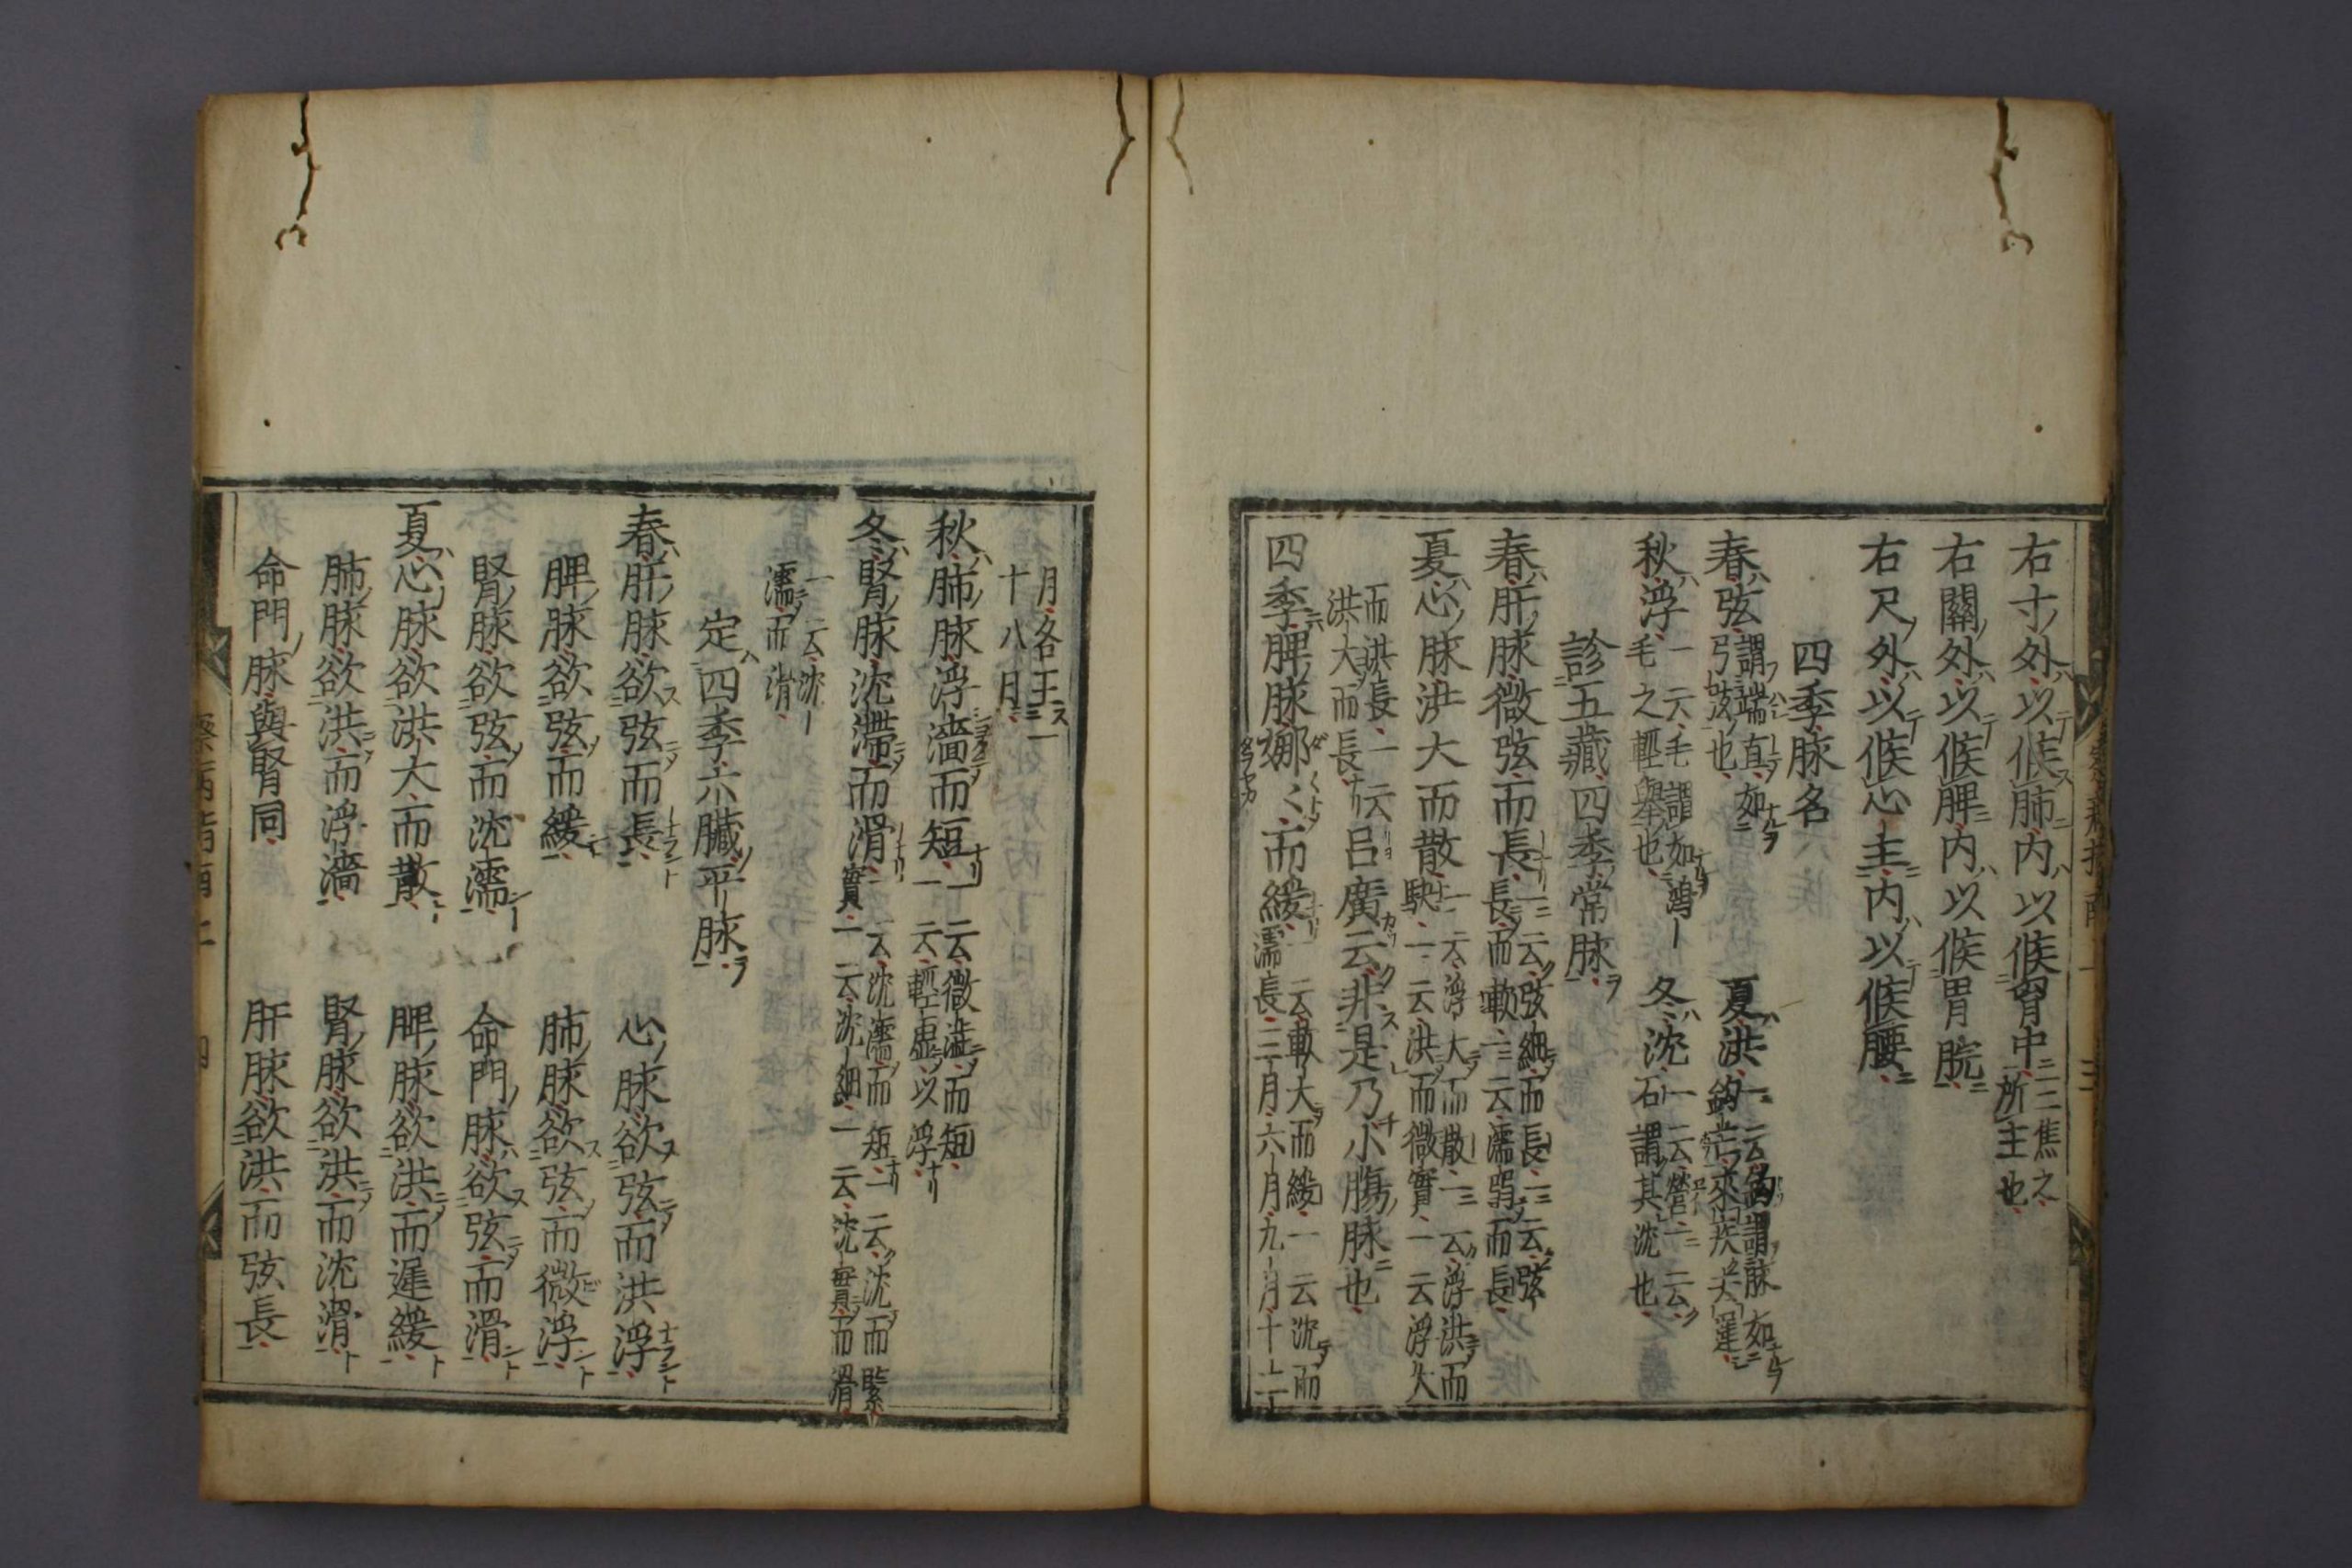 右寸外以候肺内以候胷中二三焦之所主也
右關外以候脾内以候胃脘
右尺外以候心主内以候腰
四季脉名
春弦謂端直如弓弦也 夏洪
秋浮一云毛謂如鴻毛之輕舉也 冬沈一云營一云石謂其沈也
診五藏四季常脉
春肝脉微弦而長一云弦細而長一云弦長而軟一云濡弱而長
夏心脉洪大而散一云浮大而散一云浮洪而駃一云洪而微實一云浮久
而洪長一云洪大而長 呂廣云非是乃小腸脉也
四季脾脉娜々而緩一云軟大而緩一云沈而濡長三月六月九月十二
月各王十八日
秋肺脉浮濇而短一云微濇而短一云輕虚以浮
冬腎脉沈滯而滑一云沈濡而短一云沈而緊實一云沈細一云沈實而滑
一云沈濡而滑
定四季六臟平脉
春肝脉欲弦而長 心脉欲弦而洪浮
脾脉欲弦而緩 肺脉欲弦而微浮
腎脉欲弦而沈濡 命門脉欲弦而滑
夏心脉欲洪大而散 脾脉欲洪而遲緩
肺脉欲洪而浮濇 腎脉欲洪而沈滑
命門脉與腎同 肝脉欲洪而弦長